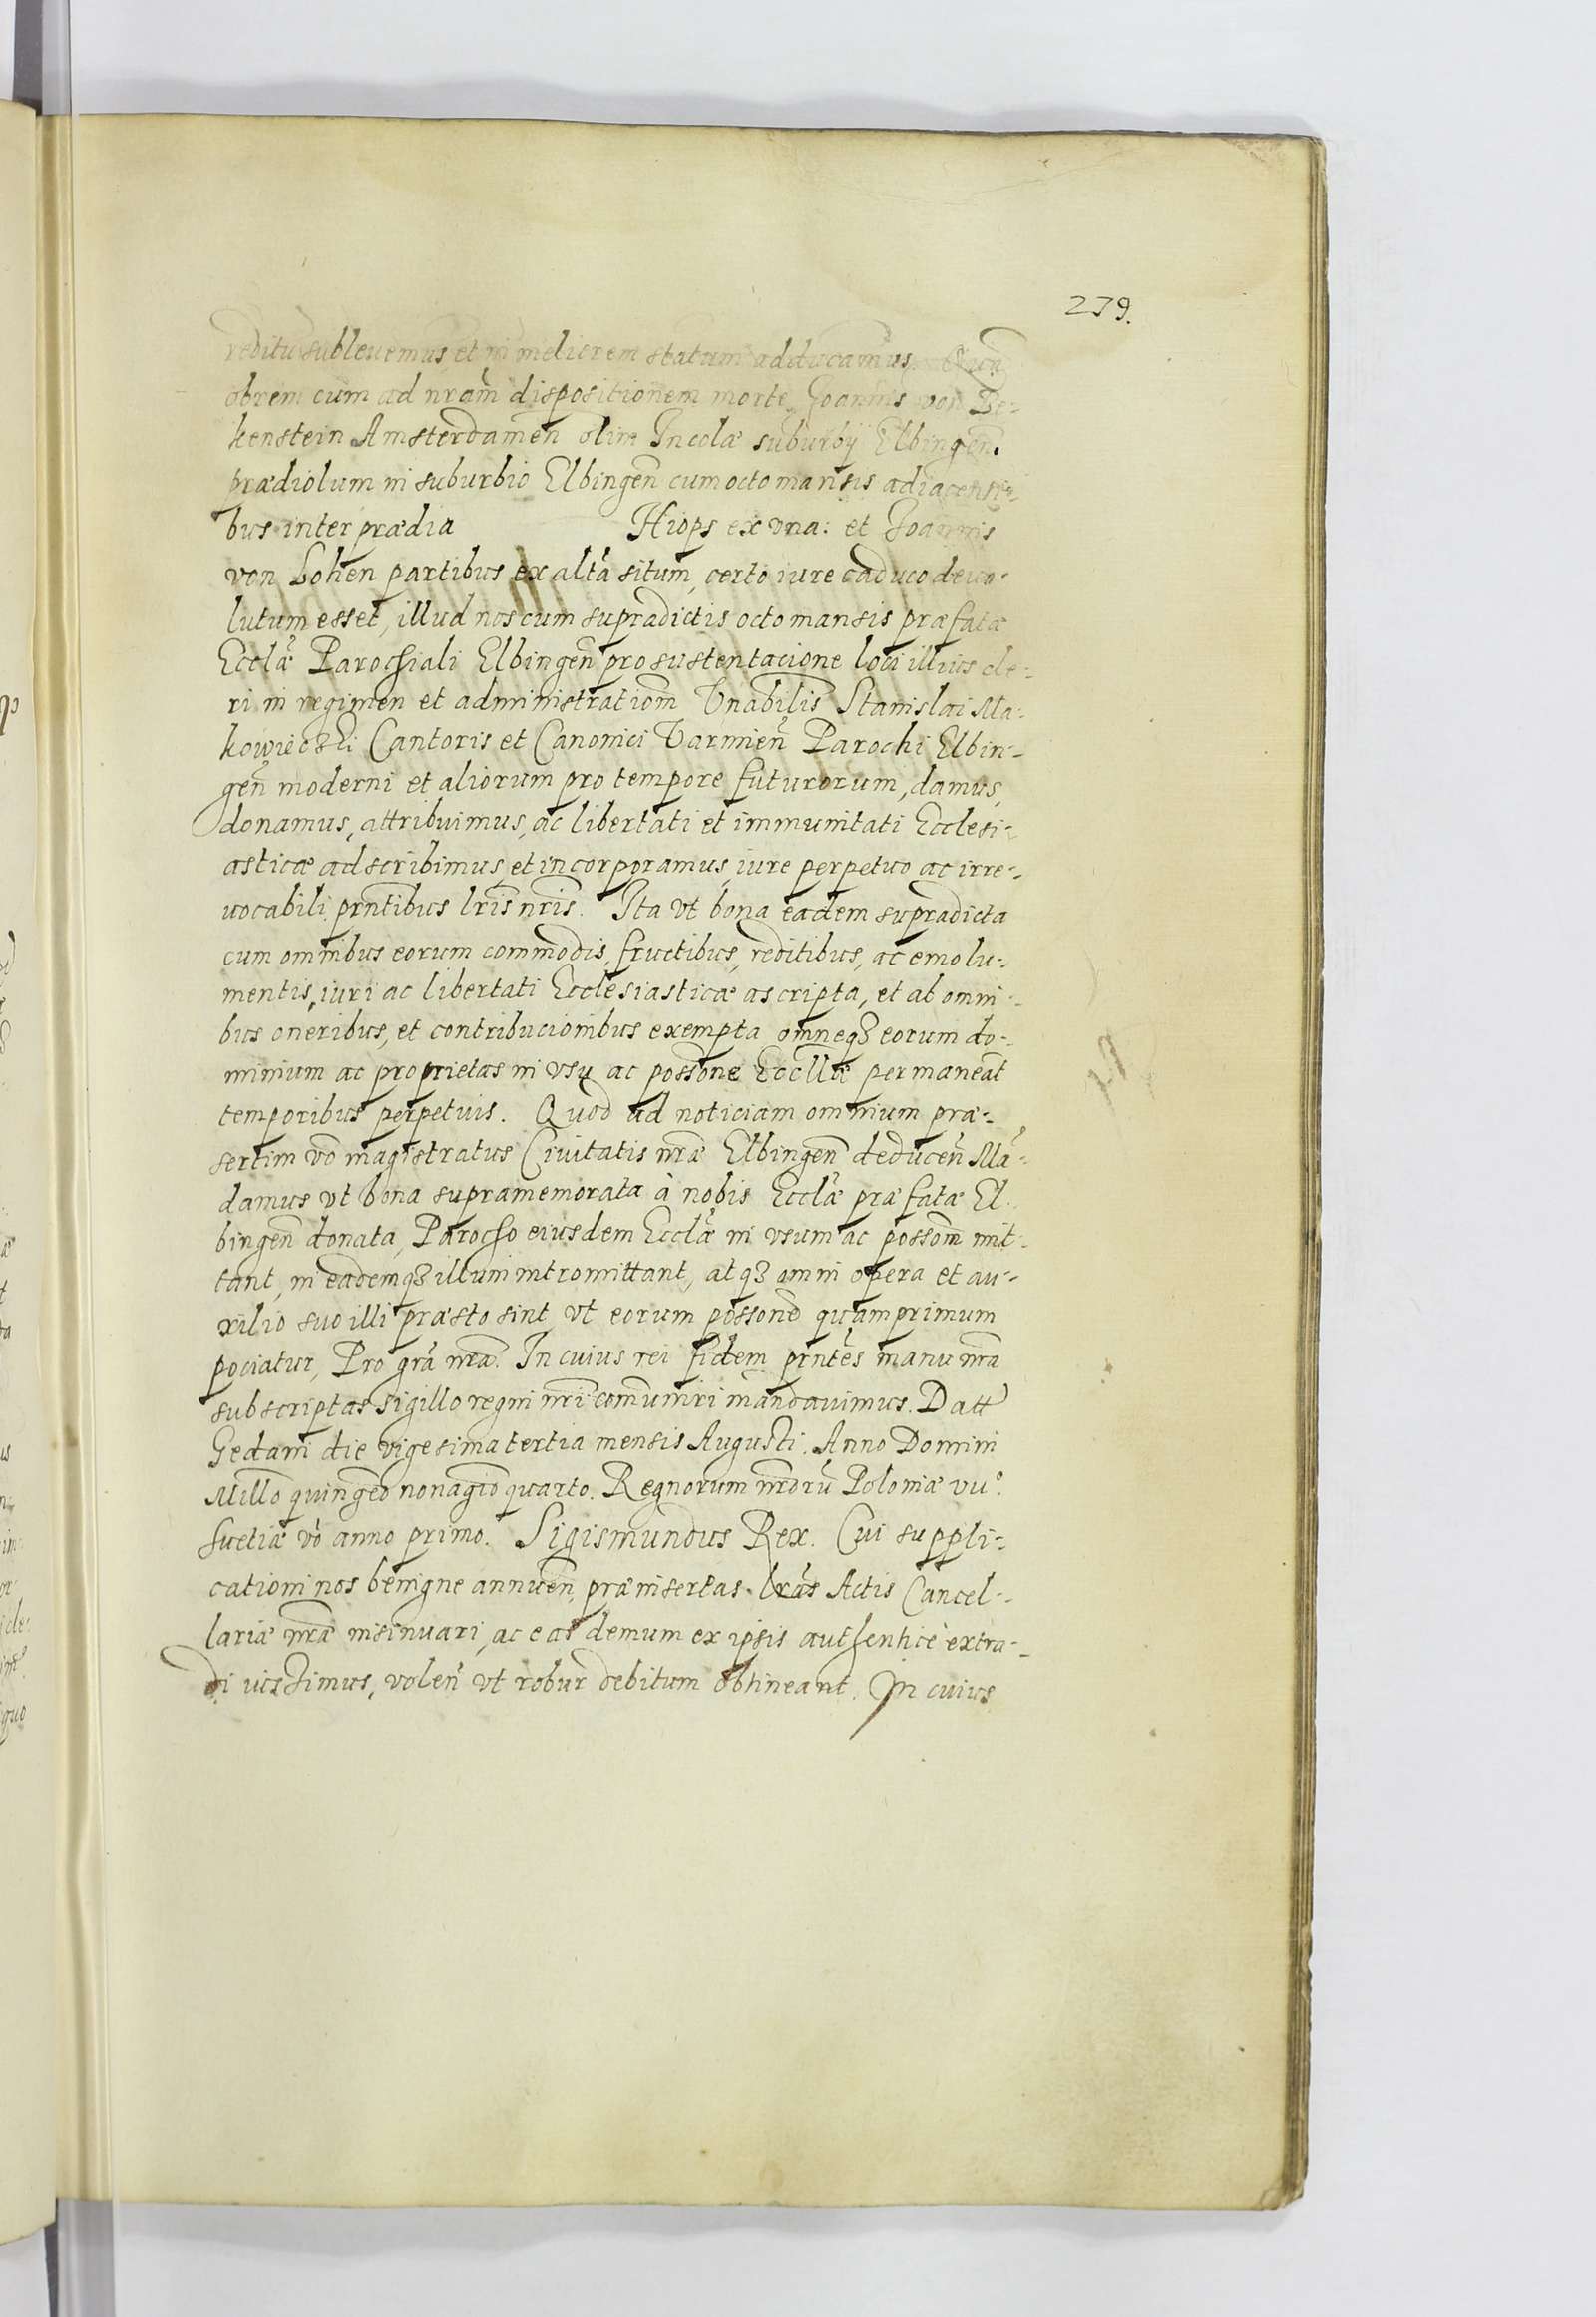 239.
reditu subleuemus, et in meliorem statum adducamus.
obrem cum ad nram̃ dispositionem morte Joannis von Be-
kenstein Amsterdamen̄ olim Incolæ suburbij Elbingen̄.
prædiolum in suburbio Elbingen̄ cum octo mansis adiacenti-
bus inter prædia Hiops ex vna: et Joannis
von Lohen partibus ex altã situm, certo iure caduco deuo-
lutum esset, illud nos cum supradictis octo mansis præfatæ
Ecclæ̃ Parochiali Elbingen̄ pro sustentacione loci illius cle-
ri in regimen et administratiom̄ Vnabilis̄ Stanislai Ma-
kowieczki Cantoris et Canonici Varmien̄ Parochi Elbin-
gen̄ moderni et aliorum pro tempore futurorum, damus,
donamus, attribuimus, ac libertati et immunitati Ecclesi-
asticæ adscribimus, et incorporamus, iure perpetuo ac irre-
uocabili prñtibus lris̄ nris̄. Ita vt bona eadem supradicta
cum omnibus eorum commodis, fructibus, reditibus, ac emolu-
mentis, iuri ac libertati Ecclesiasticæ ascripta, et ab omni-
bus oneribus, et contribucionibus exempta omneqꝫ eorum do-
minium ac proprietas in vsu ac possōne Eccl̄læ permaneãt
temporibus perpetuis. Quod ad noticiam omnium præ-
sertim vō magistratus Ciuitatis nrǣ Elbingen̄ deducen̄ Mã-
damus vt bona supramemorata à nobis Ecclæ̃ præfatæ El-
bingen̄ donata, Parocho eiusdem Ecclæ̃ in vsum ac possom̄ mit-
tant, in eademqꝫ illum intromittant, atqꝫ omni opera et au-
xilio suo illi præsto sint, vt eorum possonē quamprimum
pociatur, Pro grã nrã. In cuius rei fidem prñtes manu nrã
subscriptas sigillo regni nri̅ comuniri mandauimus. Datt
Gedani die vigesima tertia mensis Augusti. Anno Domini
Millō quingēo nonagīo quarto. Regnorum nrōrū Poloniæ vııº.
Suetiæ vō anno primo. Sigismundus Rex. Cui suppli-
cationi nos benigne annuen̄, præinsertas lrãs Actis Cancel-
lariæ nrǣ insinuari, ac eas demum ex ipsis authenticè extra-
di iussimus, volen̄ vt robur debitum obtineant. In cuius